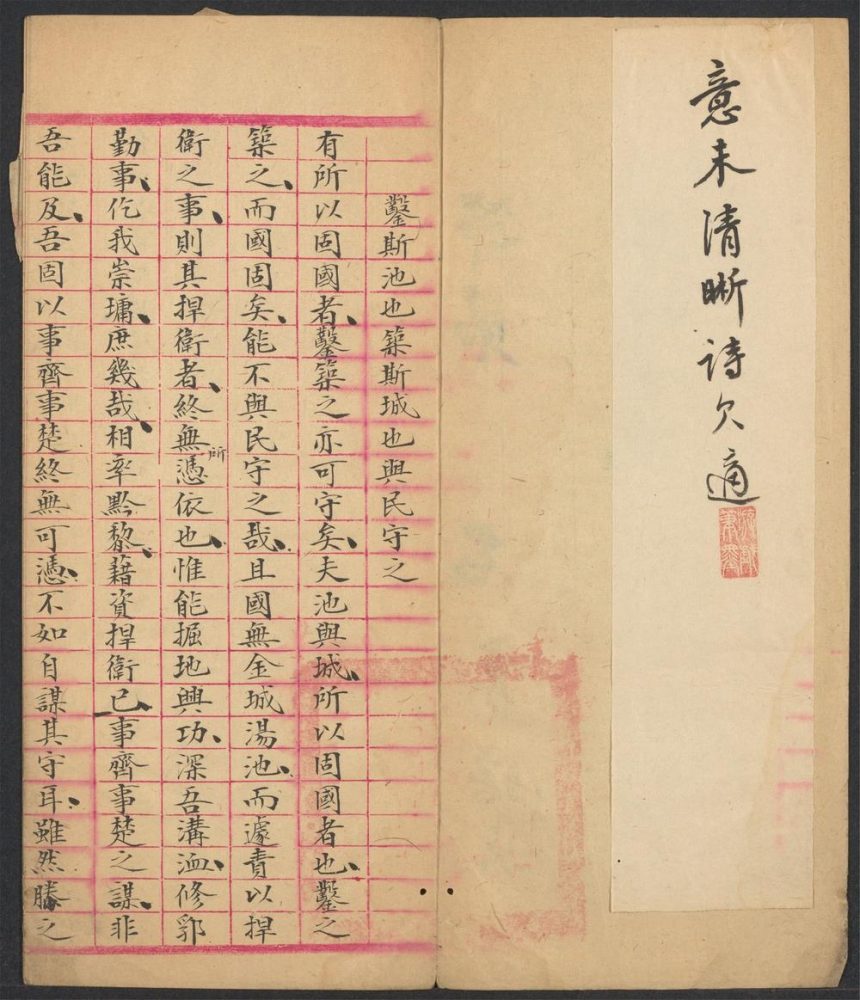 意未清晰詩欠適
鑿斯池也築斯城也與民守之
有所以固國者、鑿築之亦可守矣、夫池與城、所以固國者也、鑿之
築之、而國固矣、能不與民守之哉、且國無金城湯池、而遽責以捍
衛之事、則其捍衛者、終無所憑依也、惟能掘地興功、深吾溝洫、修郛
勤事、仡我崇墉、庶幾哉、相率黔黎、藉資捍衛已、事齊事楚之謀、非
吾能及、吾固以事齊事楚終無可憑、不如自謀其守耳、雖然滕之